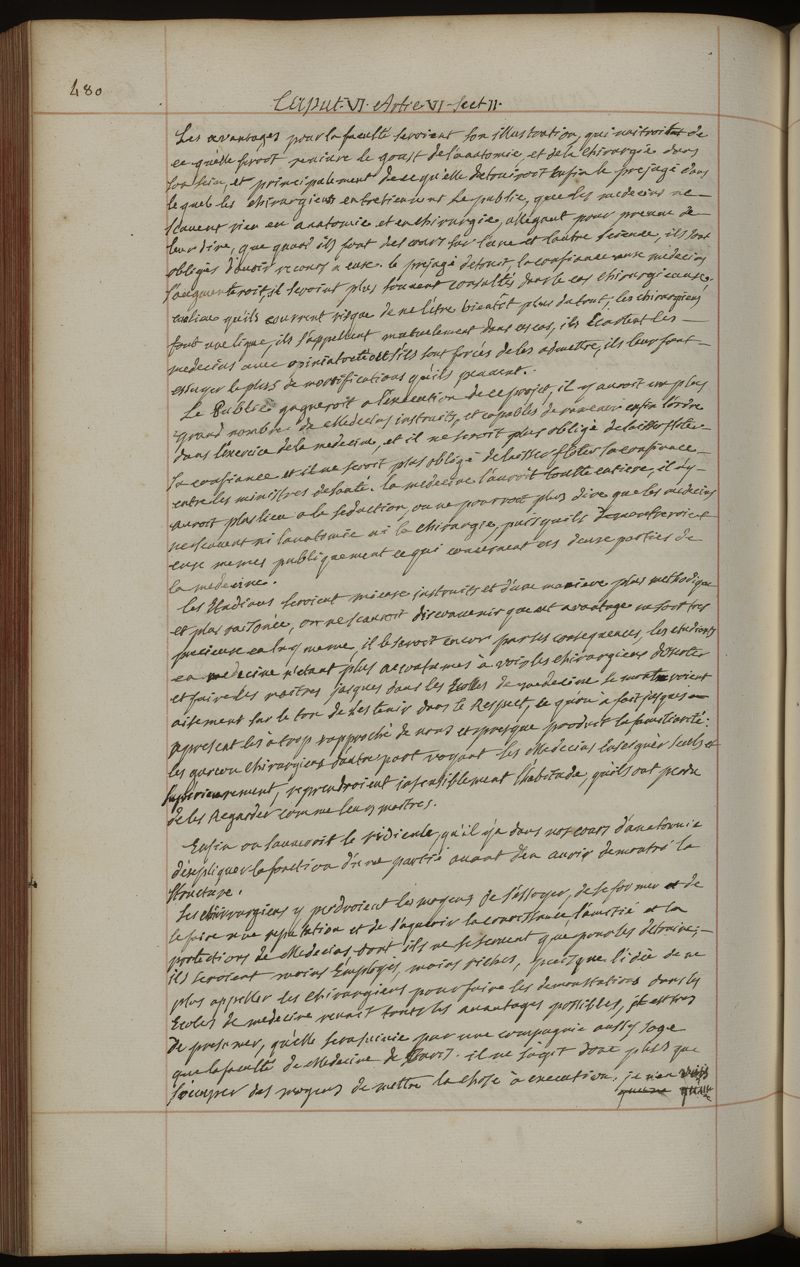 480
Caput. VI. Artic VI. Sect II.
Les avantages pour la faculté seroient son illustration, qui naitroit de
ce qu'elle feroit revivre le goust de l'anatomie, et de la Chirurgie dans
son sein, et principalement de ce qu'elle detruiroit enfin le prejugé dans
lequel les chirurgiens entretiennent le public, que les medecins ne
scavent rien en anatomie et en chirurgie, alleguant pour preuve de
leur dire, que quand ils font des cours sur l'une et l'autre Science, ils sont
obligés d'avoir recours a eux. le prejugé detruit, la confiance aux medecins
s'augmenteroit, il seroint plus souvent consultés dans le cas chirurgicaux,
au lieu qu'ils courrent risque de ne l'être bientôt plus du tout, les chirurgiens
font une ligue, ils s'appellent mutuelement dans ces cas, ils Ecartent les
medecins avec opiniatreté et s'ils sont forcés de les admettre, ils leur font
essuyer le plus de mortifications qu'ils peuvent.
Le Public gagneroit a l'execution de ce projet, il y auroit un plus
grand nombre de Medecins instruits, et capables de ramener enfin l'ordre
dans l'exercice de la medecine, et il ne seroit plus obligé de laisser flotter
sa confiance et il ne seroit plus obligé de laisser floter sa confiance
entre les ministres de santé. la medecine l'auroit toutte entiere, il n'y
auroit plus lieu a la seduction, on ne pourroit plus dire que les medecins
ne scavent ni l'anatomie ni la chirurgie, puisqu'ils demontreroient
eux memes publiquement ce qui concernent ces deux parties de
la medecine.
Les Etudians seroient mieux instruits et d'une maniere plus methodique
et plus raisonée, on ne scauroit disconvenir que cet avantage ne soit tres
precieux en luy meme, il le seroit encor par ses consequences, les etudiants
en medecine n'etant plus accoutumés à voir les chirurgiens disserter
et faire les maitres jusques dans les Ecolles de medecine se monteroient
aisement sur le ton de les tenir dans le Respect, ce qu'on a fait jusques a
present les à trop rapproché de nous et presque produit la familiarité:
les garcon chirurgiens d'autre part voyant les Medecins enseigner seuls et
superieurement, reprendroient insensiblement l'habitude, qu'ils ont perdu
de les Regarder comme leurs maitres.
Enfin on sauveroit le ridicule, qu'il y a dans nos cours d'anatomie
d'expliquer la fonction d'une partie avant d'en avoir demontré la
structure.
Les chirurgiens y perdroient les moyens de s'essayer, de se former et de
se faire une reputation et de s'aquerir la connoissance, l'amitié et la
protections de Medecins, dont ils ne se servent que pour les detruire,
ils seroient moins Employés, moins riches, puisque l'idée de ne
plus appeller les chirurgiens pour faire les demonstrations dans les
Ecoles de medecine reunit touts les avantages possibles, il est tres
De presumer, qu'elle sera suivie par une compagnie aussy sage
que la faculté de Medecine de Paris. il ne s'agit donc plus que
s'occuper des moyens de mettre la chose à execution. je n'en vois